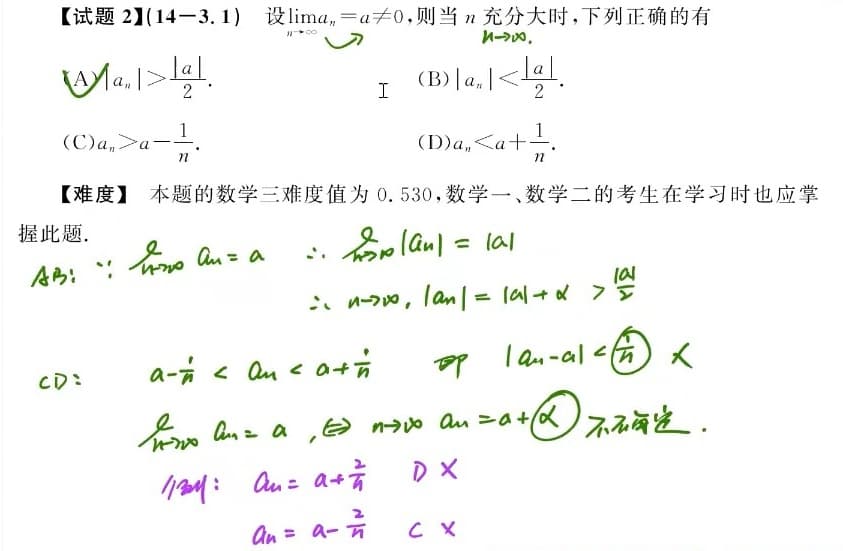 【试题 2】(14—3.1) 设lim aₙ=a≠0,则当 n 充分大时,下列正确的有
n→∞
n→∞.
(A)|aₙ|>|a|/2. (B)|aₙ|<|a|/2.
(C)aₙ>a−1/n. (D)aₙ<a+1/n.
【难度】 本题的数学三难度值为 0.530,数学一、数学二的考生在学习时也应掌
握此题.
AB: ∵ l n→∞ an = a ∴ l n→∞ |an| = |a|
∴ n→∞, |an| = |a|+α > |a|/2
CD: a-1/n < an < a+1/n 即 |an-a| < 1/n ×
l n→∞ an = a , ⇔ n→∞ an = a+α 不确定.
例: an = a+2/n D ×
an = a-2/n C ×